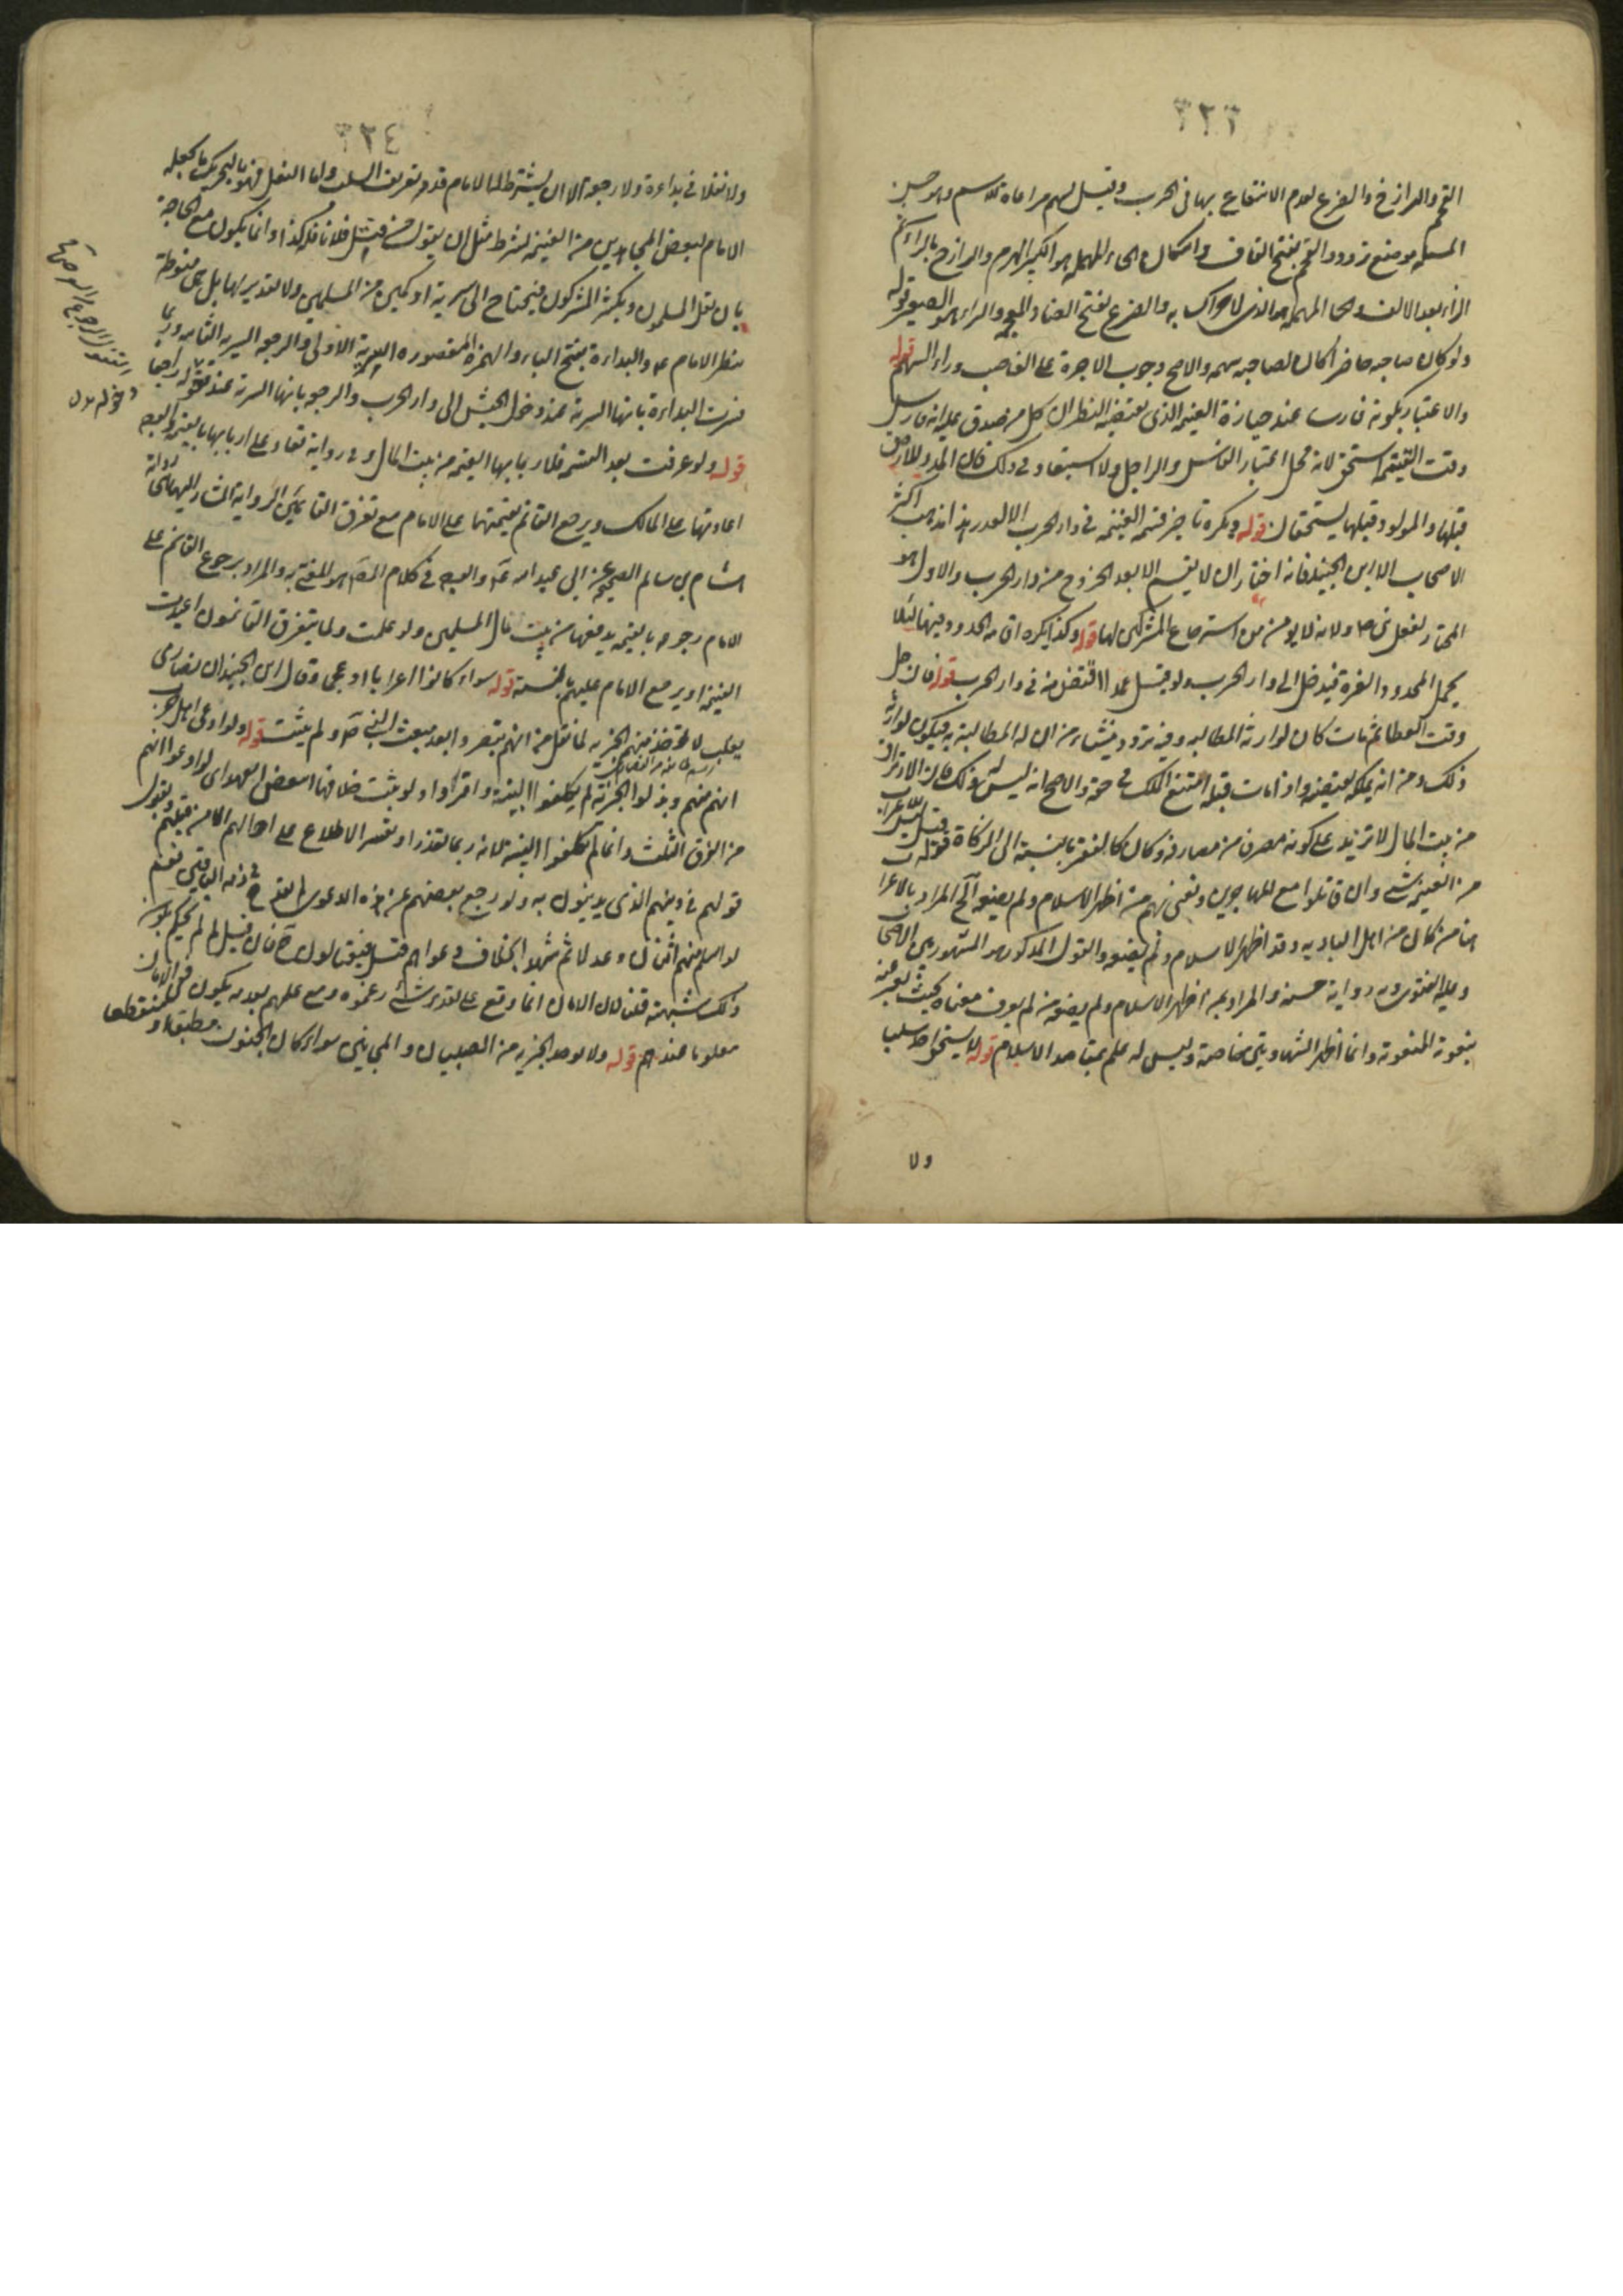 ٣٢٣
القحم والرازخ والضرع لعدم الانتفاع بها في الحرب وقيل يسهم مراعاة للاسم وهو حسن
المسئلة موضع تردد والقحم بفتح القاف واسكان الحاء المهملة هو الكبير الهرم والرازح بالراء ثم
الزاء بعد الالف والحاء المهملة هو الذي لا حراك به والضرع بفتح الضاد المعجمة والراء هو الصغير قوله
ولو كان صاحبه حاضرا كان لصاحبه سهمه والاصح وجوب الاجرة على الغاصب وراء السهم قوله
والاعتبار بكونه فارسا عند حيازة الغنيمة الذي يقتضيه النظر ان كل من صدق عليه انه فارس
وقت القسمة استحق لانه محل اعتبار الفارس والراجل ولا استبعاد في ذلك فان المدد اللاحق
قبلها والمولود قبلها يستحقان قوله ويكره تاخير قسمة الغنيمة في دار الحرب الا لعذر هذا مذهب اكثر
الاصحاب الا ابن الجنيد فانه اختار ان لا يقسم الا بعد الخروج من دار الحرب والاول هو
المختار لفعل النبي ص ولانه لا يؤمن من استرجاع المشركين لها قوله وكذا يكره اقامة الحدود فيها لئلا
يحمل المحدود الغيرة فيدخل الى دار الحرب ولو قتل عمدا اقتص منه في دار الحرب قوله فان حل
وقت العطاء ثم مات كان لوارثه المطالبة وفيه تردد ينشاء من ان له المطالبة به فيكون لوارثه
ذلك ومن انه يملكه بقبضه واذا مات قبله امتنع الملك في حقه والاصح انه ليس له ذلك فان الارتزاق
من بيت المال لا تزيد على كونه مصرفا من مصارفه وكان كالفقير بالنسبة الى الزكاة قوله قيل ليس للاعراب
من الغنيمة شيء وان قاتلوا مع المهاجرين ونعني بهم من اظهر الاسلام ولم يصفه آلخ المراد بالاعراب
هنا من كان من اهل البادية وقد اظهر الاسلام ولم يصفه والقول المذكور هو المشهور بين الاصحاب
وعليه الفتوى وبه رواية حسنة والمراد بمن اظهر الاسلام ولم يصفه من لم يعرف معناه بحيث يعبر عنه
بنعوته المنعوتة وانما اظهر الشهادتين خاصة وليس له علم بمقاصد الاسلام قوله لا يستحق احد سلب
ولا
٣٢٤
ولا نفلا في بداءة ولا رجعة الا ان يشترط له الامام قد مر تعريف السلب واما النفل فهو بالتحريك ما يجعله
الامام لبعض المجاهدين من الغنيمة بشرط مثل ان يقول من قتل فلانا فله كذا وانما يكون مع الحاجة
بان يقل المسلمون ويكثر المشركون فيحتاج الى سرية او كمين من المسلمين ولا تقدير لها بل هي منوطة
بنظر الامام ع والبداءة بفتح الباء والهمزة المقصورة السرية الاولى والرجعة السرية الثانية وربما
فسرت البداءة بانها السرية عند دخول الجيش الى دار الحرب والرجعة بانها السرية عند قفوله راجعا
قوله ولو عرفت بعد القسمة فلاربابها القيمة من بيت المال وفي رواية تعاد على اربابها بالقيمة والوجه
اعادتها على المالك ويرجع الغانم بقيمتها على الامام مع تفرق الغانمين الرواية المشار اليها هي رواية
هشام بن سالم الصحيحة عن ابي عبد الله ع والوجه في كلام المص هو المفتى به والمراد برجوع الغانم على
الامام رجوعه بالقيمة يدفعها من بيت مال المسلمين ولو علمت ولما يتفرق الغانمون اعيدت
الغنيمة او يرجع الامام عليهم بالنسبة قوله سواء كانوا اعرابا او عجم وقال ابن الجنيد ان نصارى
تغلب لا تؤخذ منهم الجزية لما نقل من انهم تنصروا بعد مبعث النبي ص ولم يثبت قوله ولو ادعى اهل حرب
انهم منهم وبذلوا الجزية لم يكلفوا البينة واقروا ولو ثبت خلافها انتقض العهد اي لو ادعوا انهم
من الفرق الثلث وانما لم يكلفوا البينة لانه ربما تعذر او تعسر الاطلاع على احوالهم الا من قبلهم ويقبل
قولهم في دينهم الذي يدينون به ولو رجع بعضهم عن هذه الدعوى لم يقدح في ذمة الباقين نعم
لو اسلم منهم اثنان وعدلا ثم شهدا بخلاف دعواهم قتل فيغتالون ح فان قيل لم لم يحكم بكون
ذلك شبهة قلنا لان الامان انما وقع على تقدير شيء زعموه ومع علمهم بعدمه يكون الامان
معلوما عندهم قوله ولا يؤخذ الجزية من الصبيان والمجانين سواء كان الجنون مطبقا او منقطعا